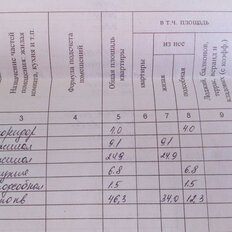 в т.ч. площадь
из нее
Назначение частей помещения: жилая комната, кухня и т.п.
Формула подсчета помещений
Общая площадь квартиры
квартиры
жилая
подсобная
3 4 5 6 7 8 9
коридор 4.0 4.0
9.1 9.1
24.9 24.9
кухня 6.8 6.8
1.5 1.5
46,3 34,0 12,3